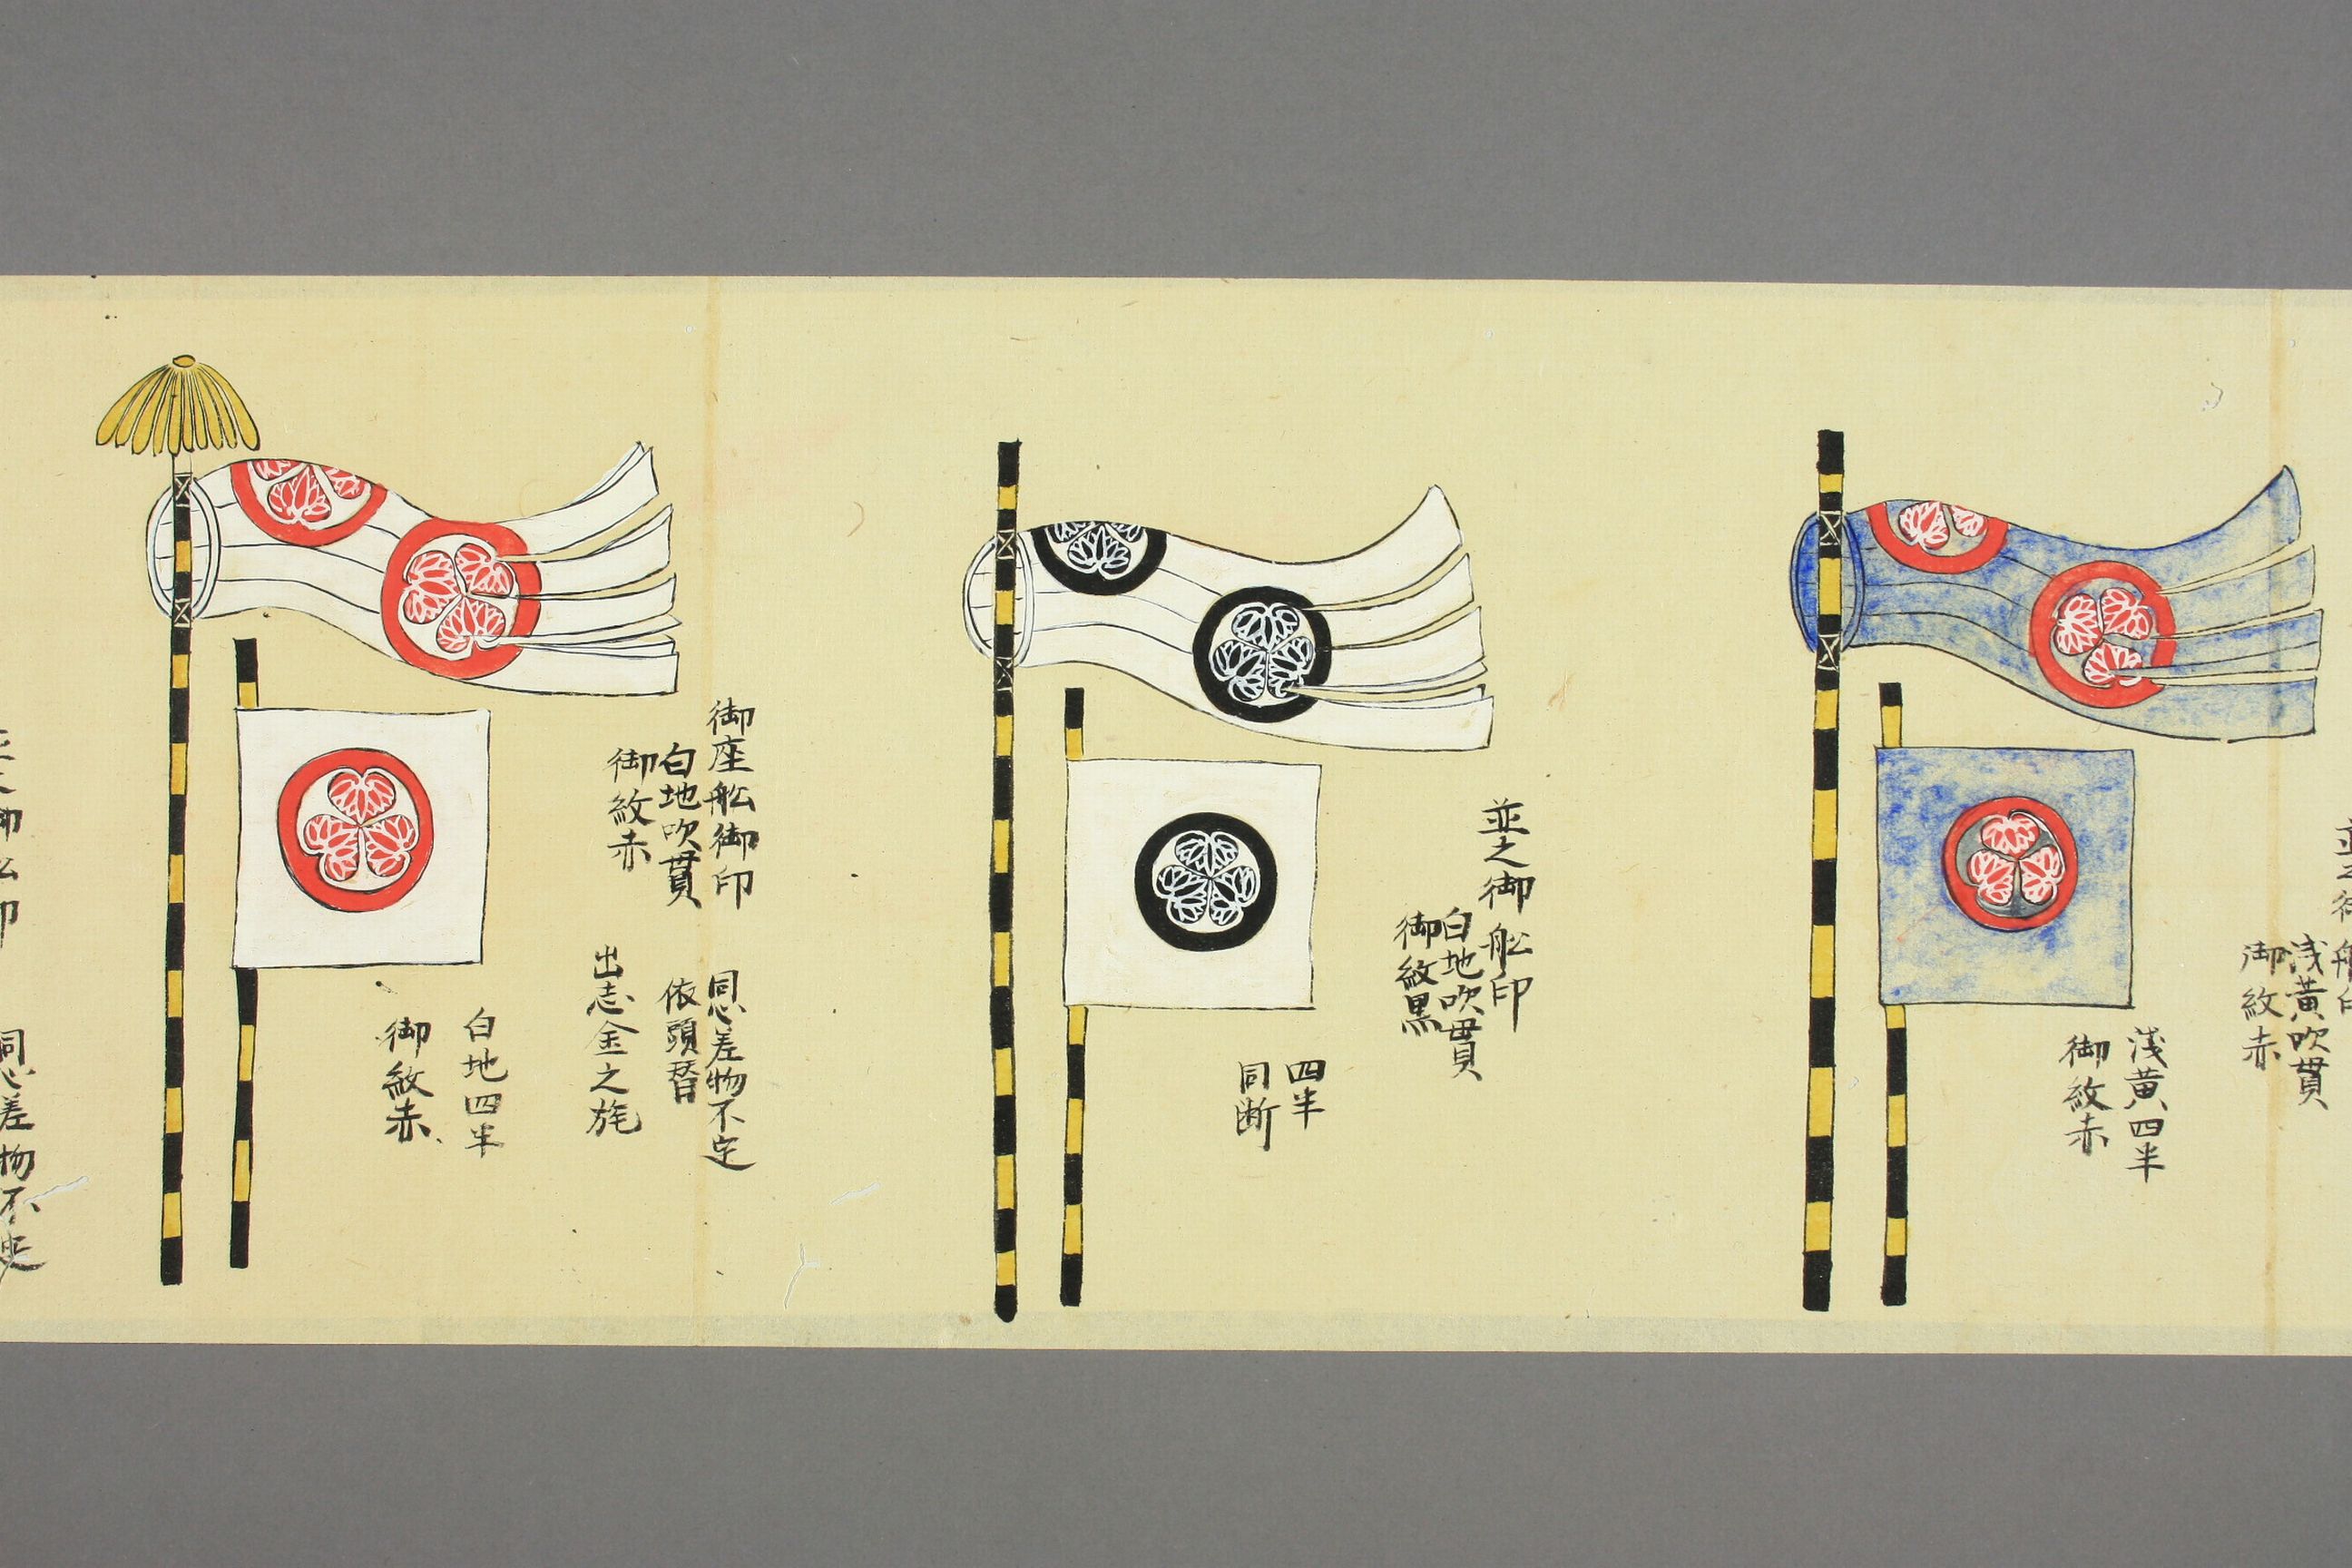 並之御船印
浅黄吹貫
御紋赤
浅黄四半
御紋赤
並之御舩印
白地吹貫
御紋黒
四半
同断
御座舩御印
白地吹貫
御紋赤
同心差物不定
依頭替
出志金之旄
白地四半
御紋赤
同心差物不